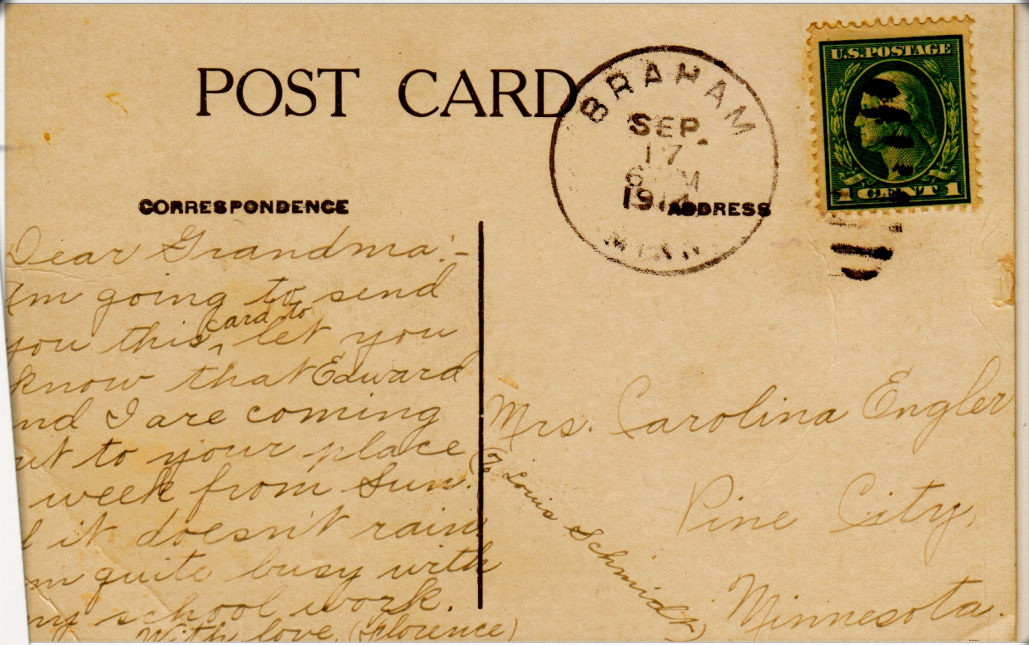 POST CARD
BRAHAM
SEP.
17
1914
MINN.
U.S. POSTAGE
1 CENT 1
CORRESPONDENCE
ADDRESS
Dear Grandma:-
Am going to send
you this card to let you
know that Edward
nd I are coming
ut to your place
week from Sun.
it doesn't rain
m quite busy with
my school work.
With love (Florence)
Mrs. Carolina Engler
(To Louis Schmidt)
Pine City,
Minnesota.